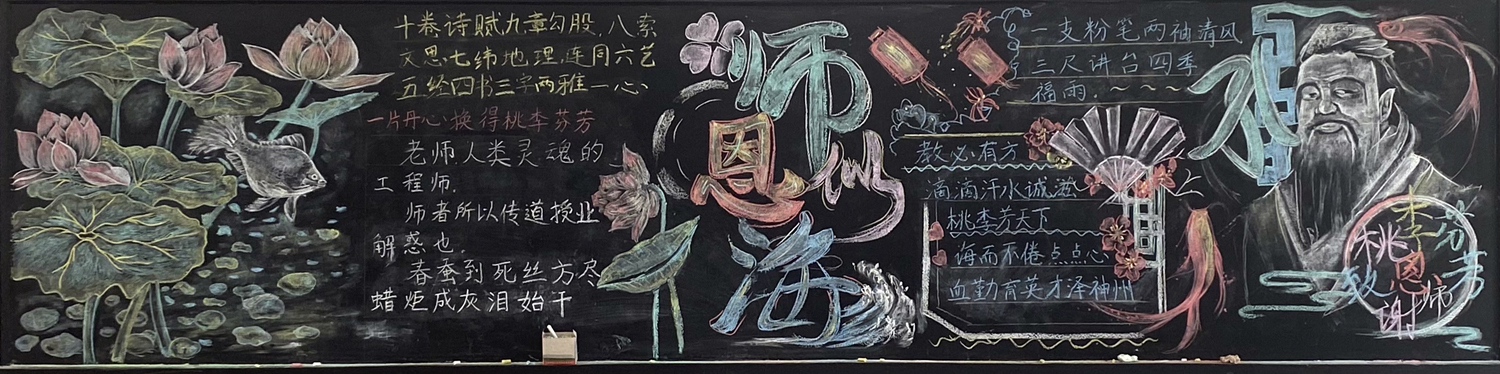 十卷诗赋九章勾股,八索
文思七纬地理,连同六艺
五经四书三字两雅一心
一片丹心换得桃李芬芳
老师人类灵魂的
工程师.
师者所以传道授业
解惑也.
春蚕到死丝方尽
蜡炬成灰泪始干
师
恩
似
海
一支粉笔两袖清风
三尺讲台四季
福雨.~~~~
教必有方
滴滴汗水诚滋
桃李芳天下
诲而不倦点点心
血勤育英才泽神州
桃李芬芳
致恩师
谢